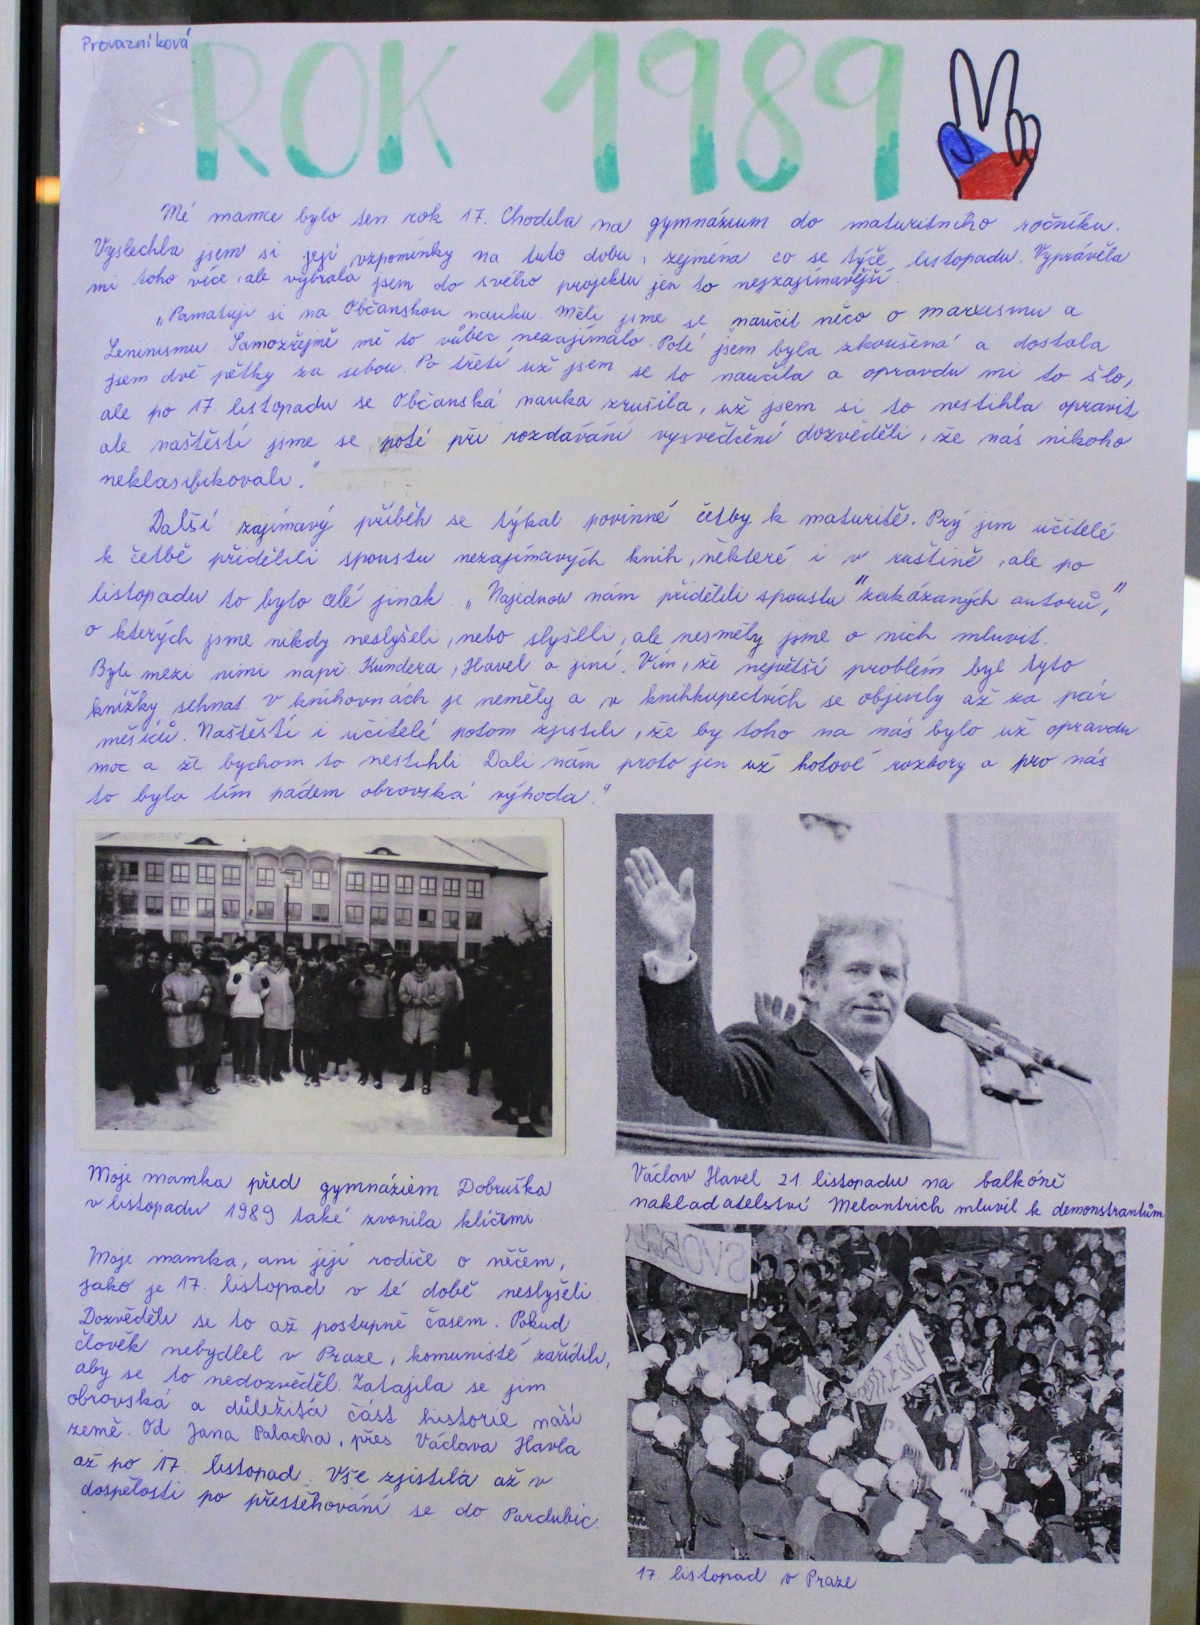 Provazníková
ROK 1989
Mé mamce bylo ten rok 17. Chodila na gymnázium do maturitního ročníku.
Vyslechla jsem si její vzpomínky na tuto dobu, zejména co se týče listopadu. Vyprávěla
mi toho více, ale vybrala jsem do svého projektu jen to nejzajímavější.
„Pamatuji si na Občanskou nauku. Měli jsme se naučit něco o marxismu a
Leninismu. Samozřejmě mě to vůbec nezajímalo. Poté jsem byla zkoušená a dostala
jsem dvě pětky za sebou. Po třetí už jsem se to naučila a opravdu mi to šlo,
ale po 17. listopadu se Občanská nauka zrušila, už jsem si to nestihla opravit,
ale naštěstí jsme se poté při rozdávání vysvědčení dozvěděli, že nás nikoho
neklasifikovali."
Další zajímavý příběh se týkal povinné četby k maturitě. Prý jim učitelé
k četbě přidělili spoustu nezajímavých knih, některé i v ruštině, ale po
listopadu to bylo celé jinak. „Najednou nám přidělili spoustu "zakázaných autorů,"
o kterých jsme nikdy neslyšeli, nebo slyšeli, ale nesměly jsme o nich mluvit.
Byli mezi nimi např. Kundera, Havel a jiní. Vím, že největší problém byl tyto
knížky sehnat. V knihovnách je neměly a v knihkupectvích se objevily až za pár
měsíců. Naštěstí i učitelé potom zjistili, že by toho na nás bylo už opravdu
moc a že bychom to nestihli. Dali nám proto jen už hotové rozbory a pro nás
to byla tím pádem obrovská výhoda."
Moje mamka před gymnáziem Dobruška
v listopadu 1989 také zvonila klíčemi
Václav Havel 21. listopadu na balkóně
nakladatelství Melantrich mluvil k demonstrantům
Moje mamka, ani její rodiče o něčem,
jako je 17. listopad v té době neslyšeli.
Dozvěděli se to až postupně časem. Pokud
člověk nebydlel v Praze, komunisté zařídili,
aby se to nedozvěděl. Zatajila se jim
obrovská a důležitá část historie naší
země. Od Jana Palacha, přes Václava Havla
až po 17. listopad. Vše zjistila až v
dospělosti po přestěhování se do Pardubic.
17. listopad v Praze